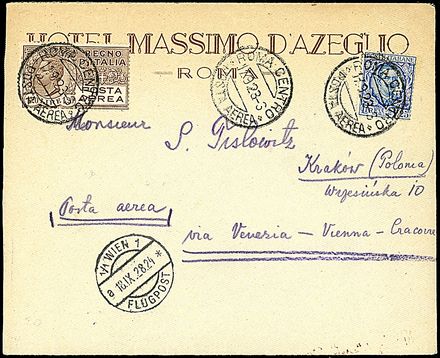 HOTEL MASSIMO D'AZEGLIO
ROMA
REGNO D'ITALIA
POSTA AEREA
ROMA CENTRO
POSTA AEREA
ROMA CENTRO
POSTA AEREA
ROMA CENTRO
POSTA AEREA
Monsieur
S. Tislowitz
Kraków (Polonia)
Wrzesińska 10
(Posta aerea)
via Venezia - Vienna - Cracovie
1/1 WIEN 1
a 18.IX.28.24 *
FLUGPOST